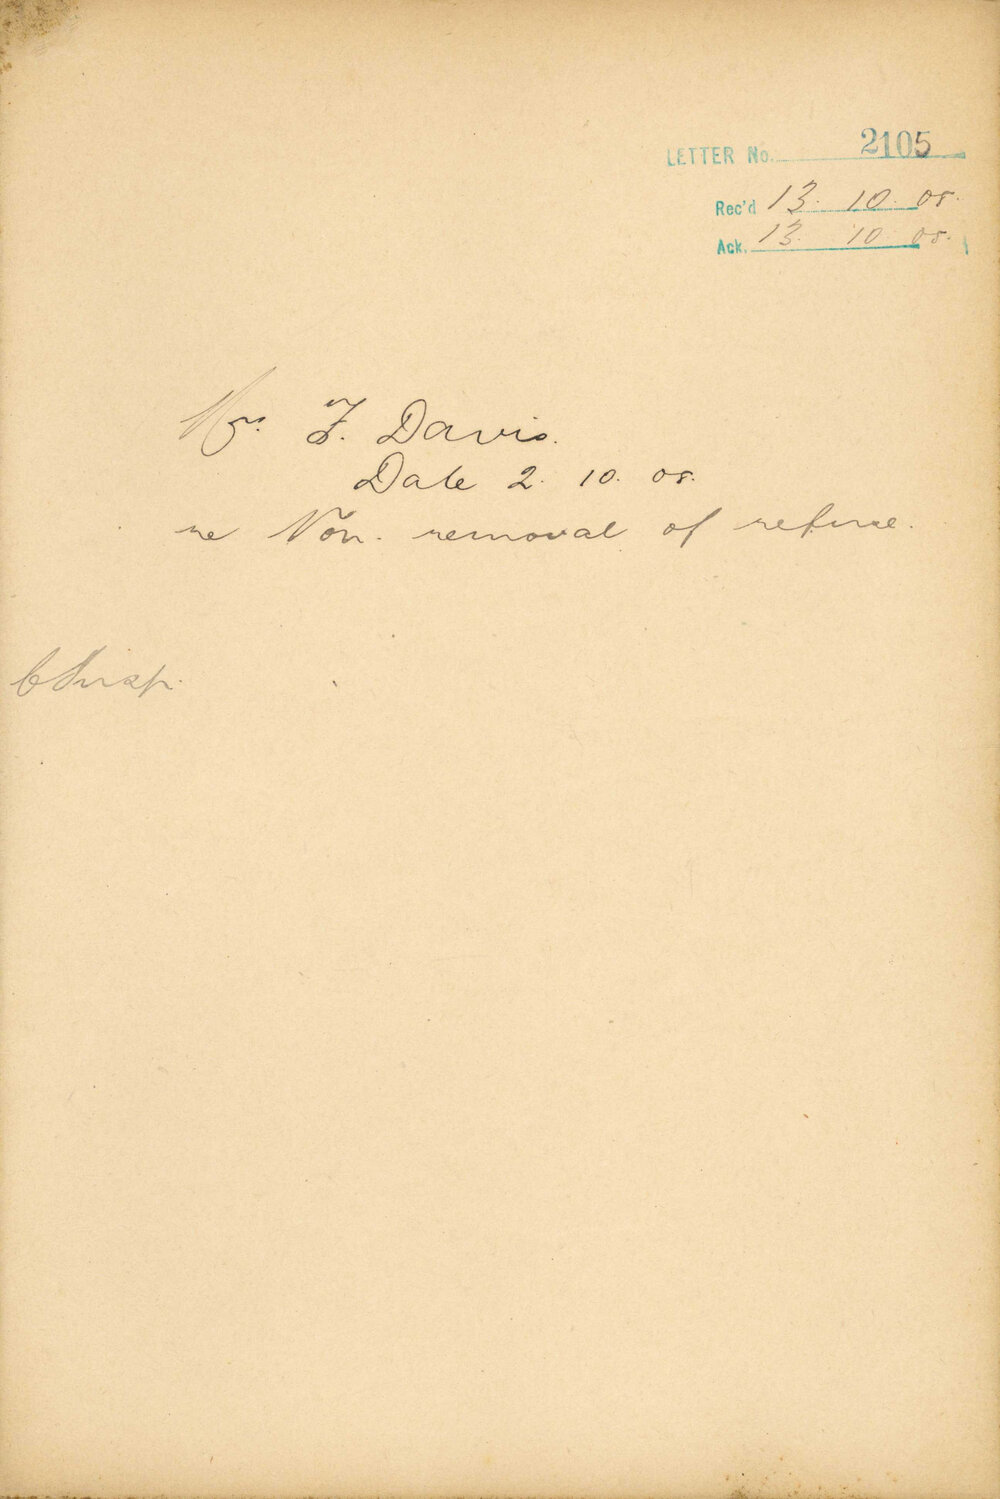 LETTER No. 2105
Rec'd 13. 10. 08.
Ack. 13. 10. 08.
Mr. F. Davis.
Date 2. 10. 08.
re Non. removal of refuse.
C Insp.